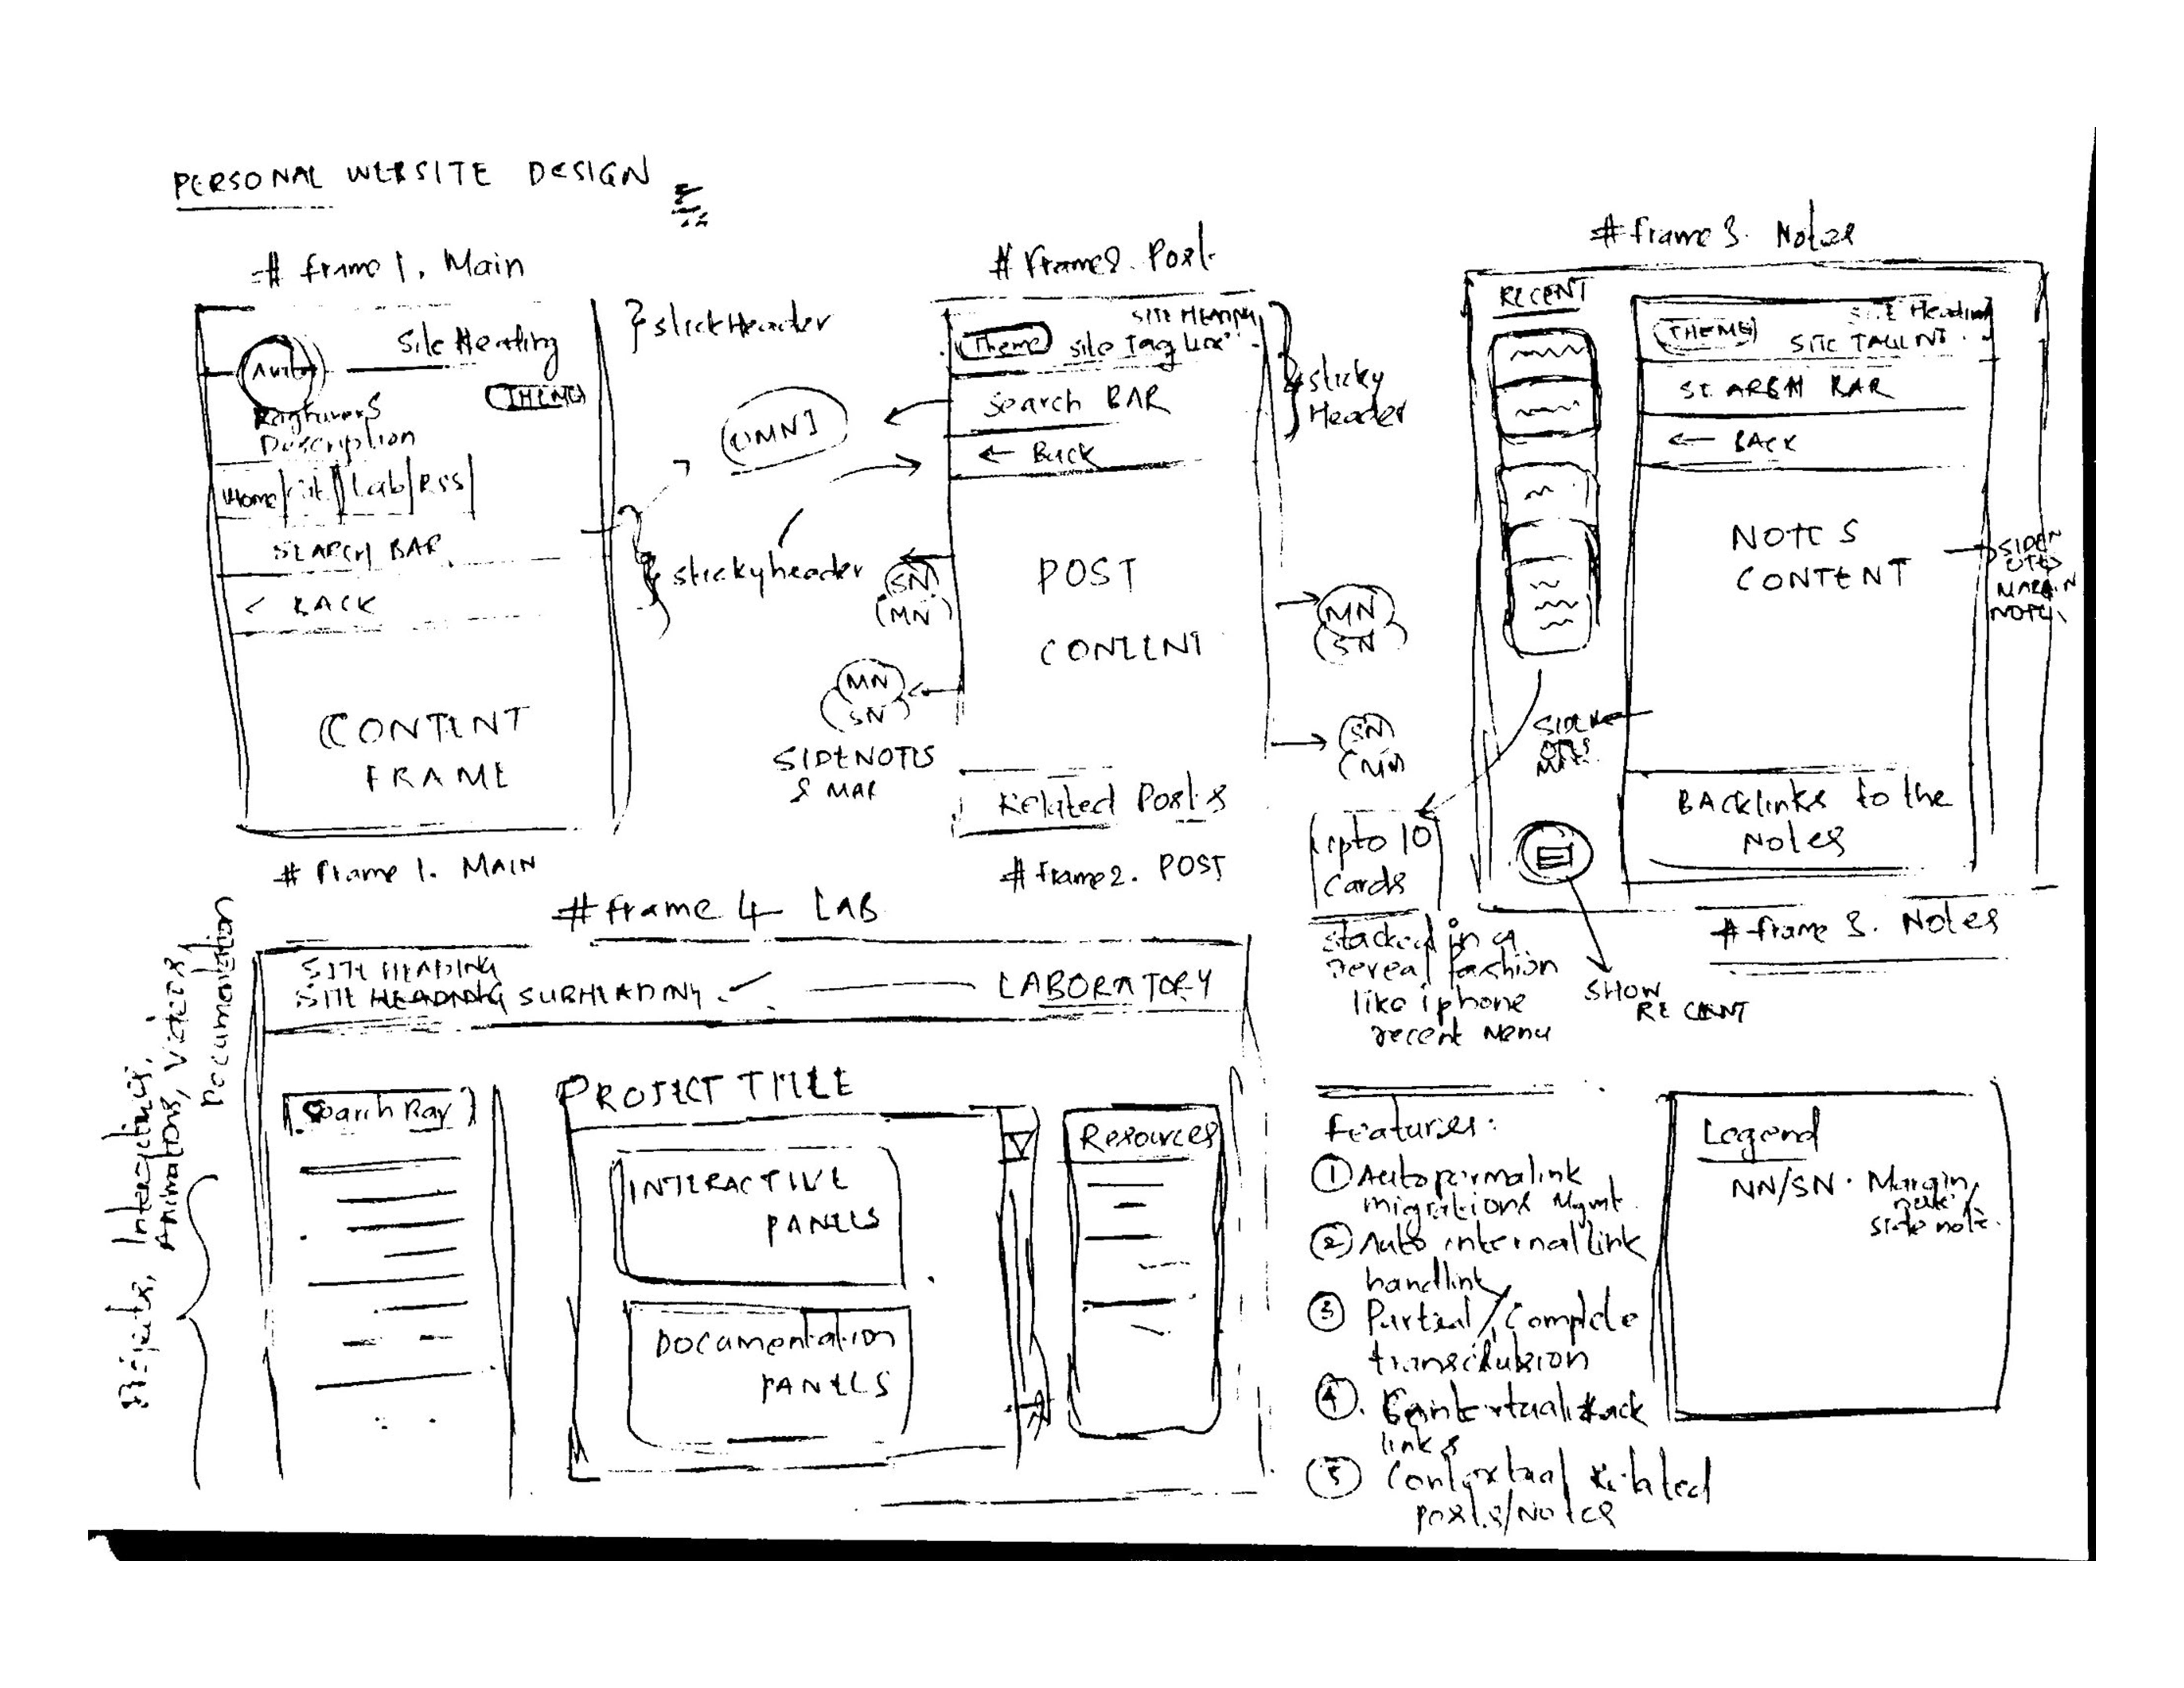 PERSONAL WEBSITE DESIGN
# frame 1. Main
Site Heading
THEME
Description
Home
Lab
RSS
SEARCH BAR
< BACK
CONTENT
FRAME
# frame 1. MAIN
} stickHeader
OMNI
stickyheader
# Frame 2. Post
SITE HEADING
Theme
site Tag Line
Search BAR
← Back
sticky
Header
POST
CONTENT
SN
MN
MN
SN
SIDENOTES
& MAR
MN
SN
SN
MN
Related Posts
# frame 2. POST
# frame 3. Notes
RECENT
THEME
SITE Heading
SITE TAGLINE
SEARCH BAR
← BACK
NOTES
CONTENT
SIDEN
OTES
MARGIN
NOTE
SIDEN
OTES
BACklinks to the
Notes
# frame 3. Notes
upto 10
Cards
stacked in a
reveal fashion
like iphone
recent Menu
SHOW
RECENT
# frame 4 LAB
SITE HEADING
SITE HEADING SUBHEADING
LABORATORY
Projects, Interactives,
Animations, Videos,
Documentation
Search Bar
PROJECT TITLE
INTERACTIVE
PANELS
Documentation
PANELS
Resources
Features:
① Auto permalink
migrations Mgmt.
② Auto internal link
handlink
③ Partial/Complete
transclusion
④. Contextual back
links
⑤ Contextual related
posts/Notes
Legend
NN/SN · Margin
note/
side note.